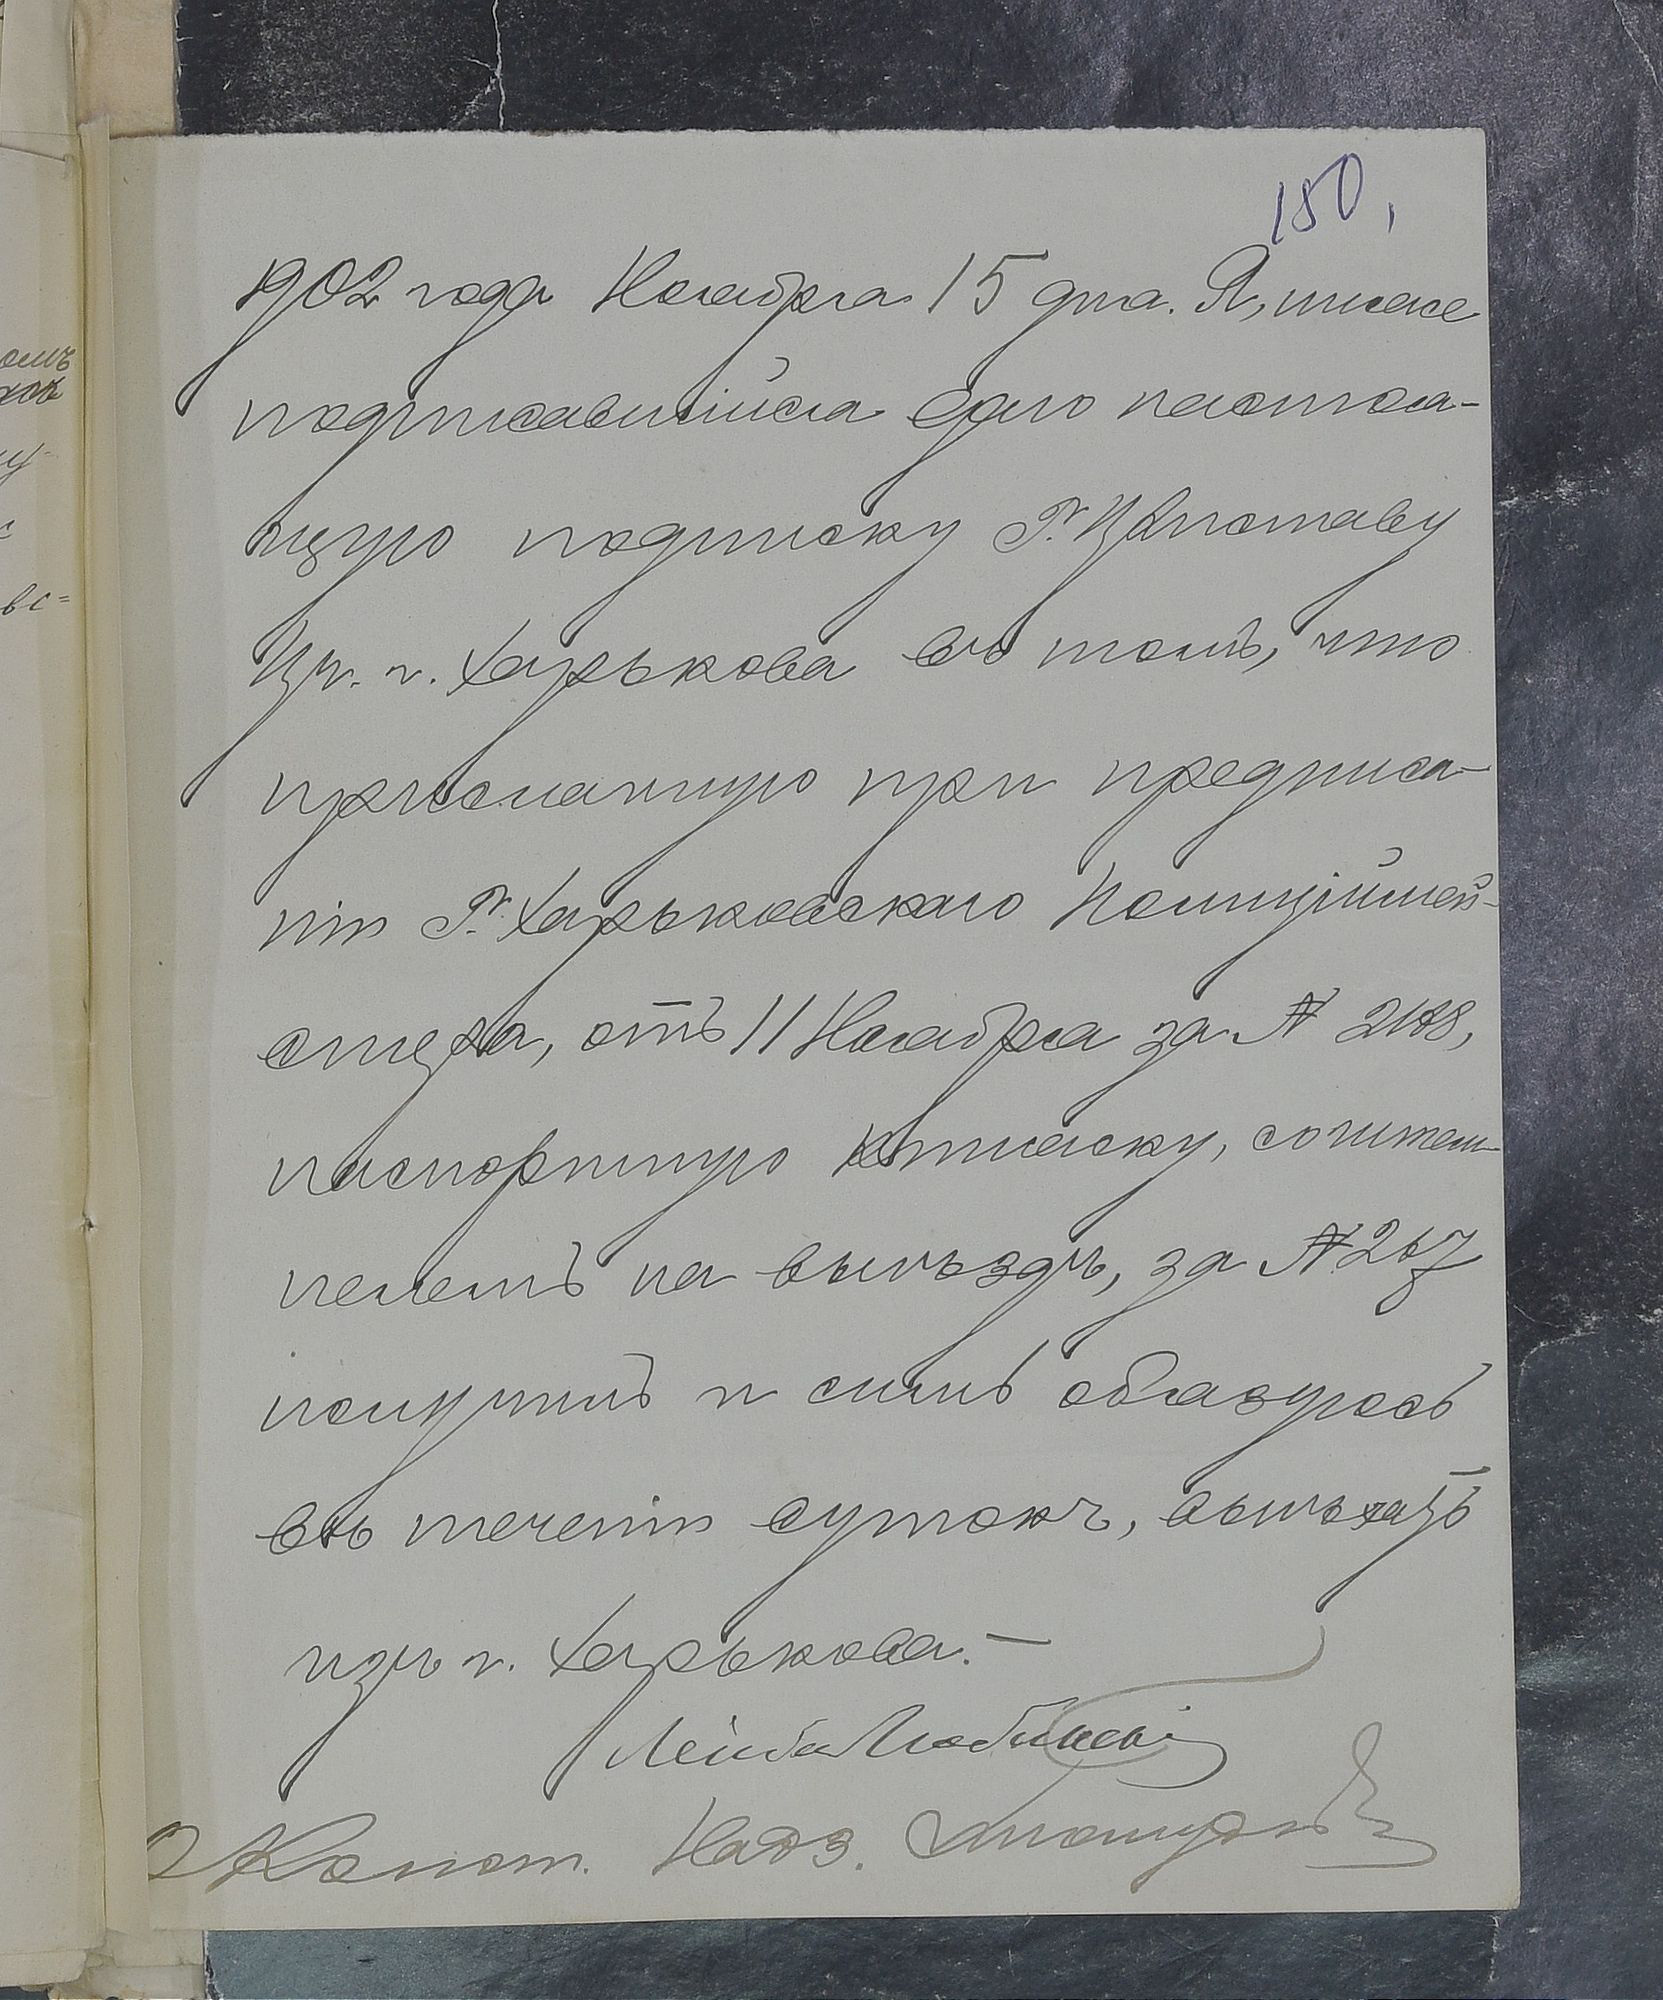 180,
1902 года Ноября 15 дня. Я, ниже
подписавшійся даю настоя-
щую подписку Г. Приставу
Уч. г. Харькова въ томъ, что
присланную при предписа-
ніи Г. Харьковскаго Полиціймей-
стера, отъ 11 Ноября за №
паспортную книжку,
на выѣздъ, за № 267
получилъ и симъ обязуюсь
въ теченіи сутокъ, выѣхать
изъ г. Харькова.—
Лейба Любинскій
Надз.